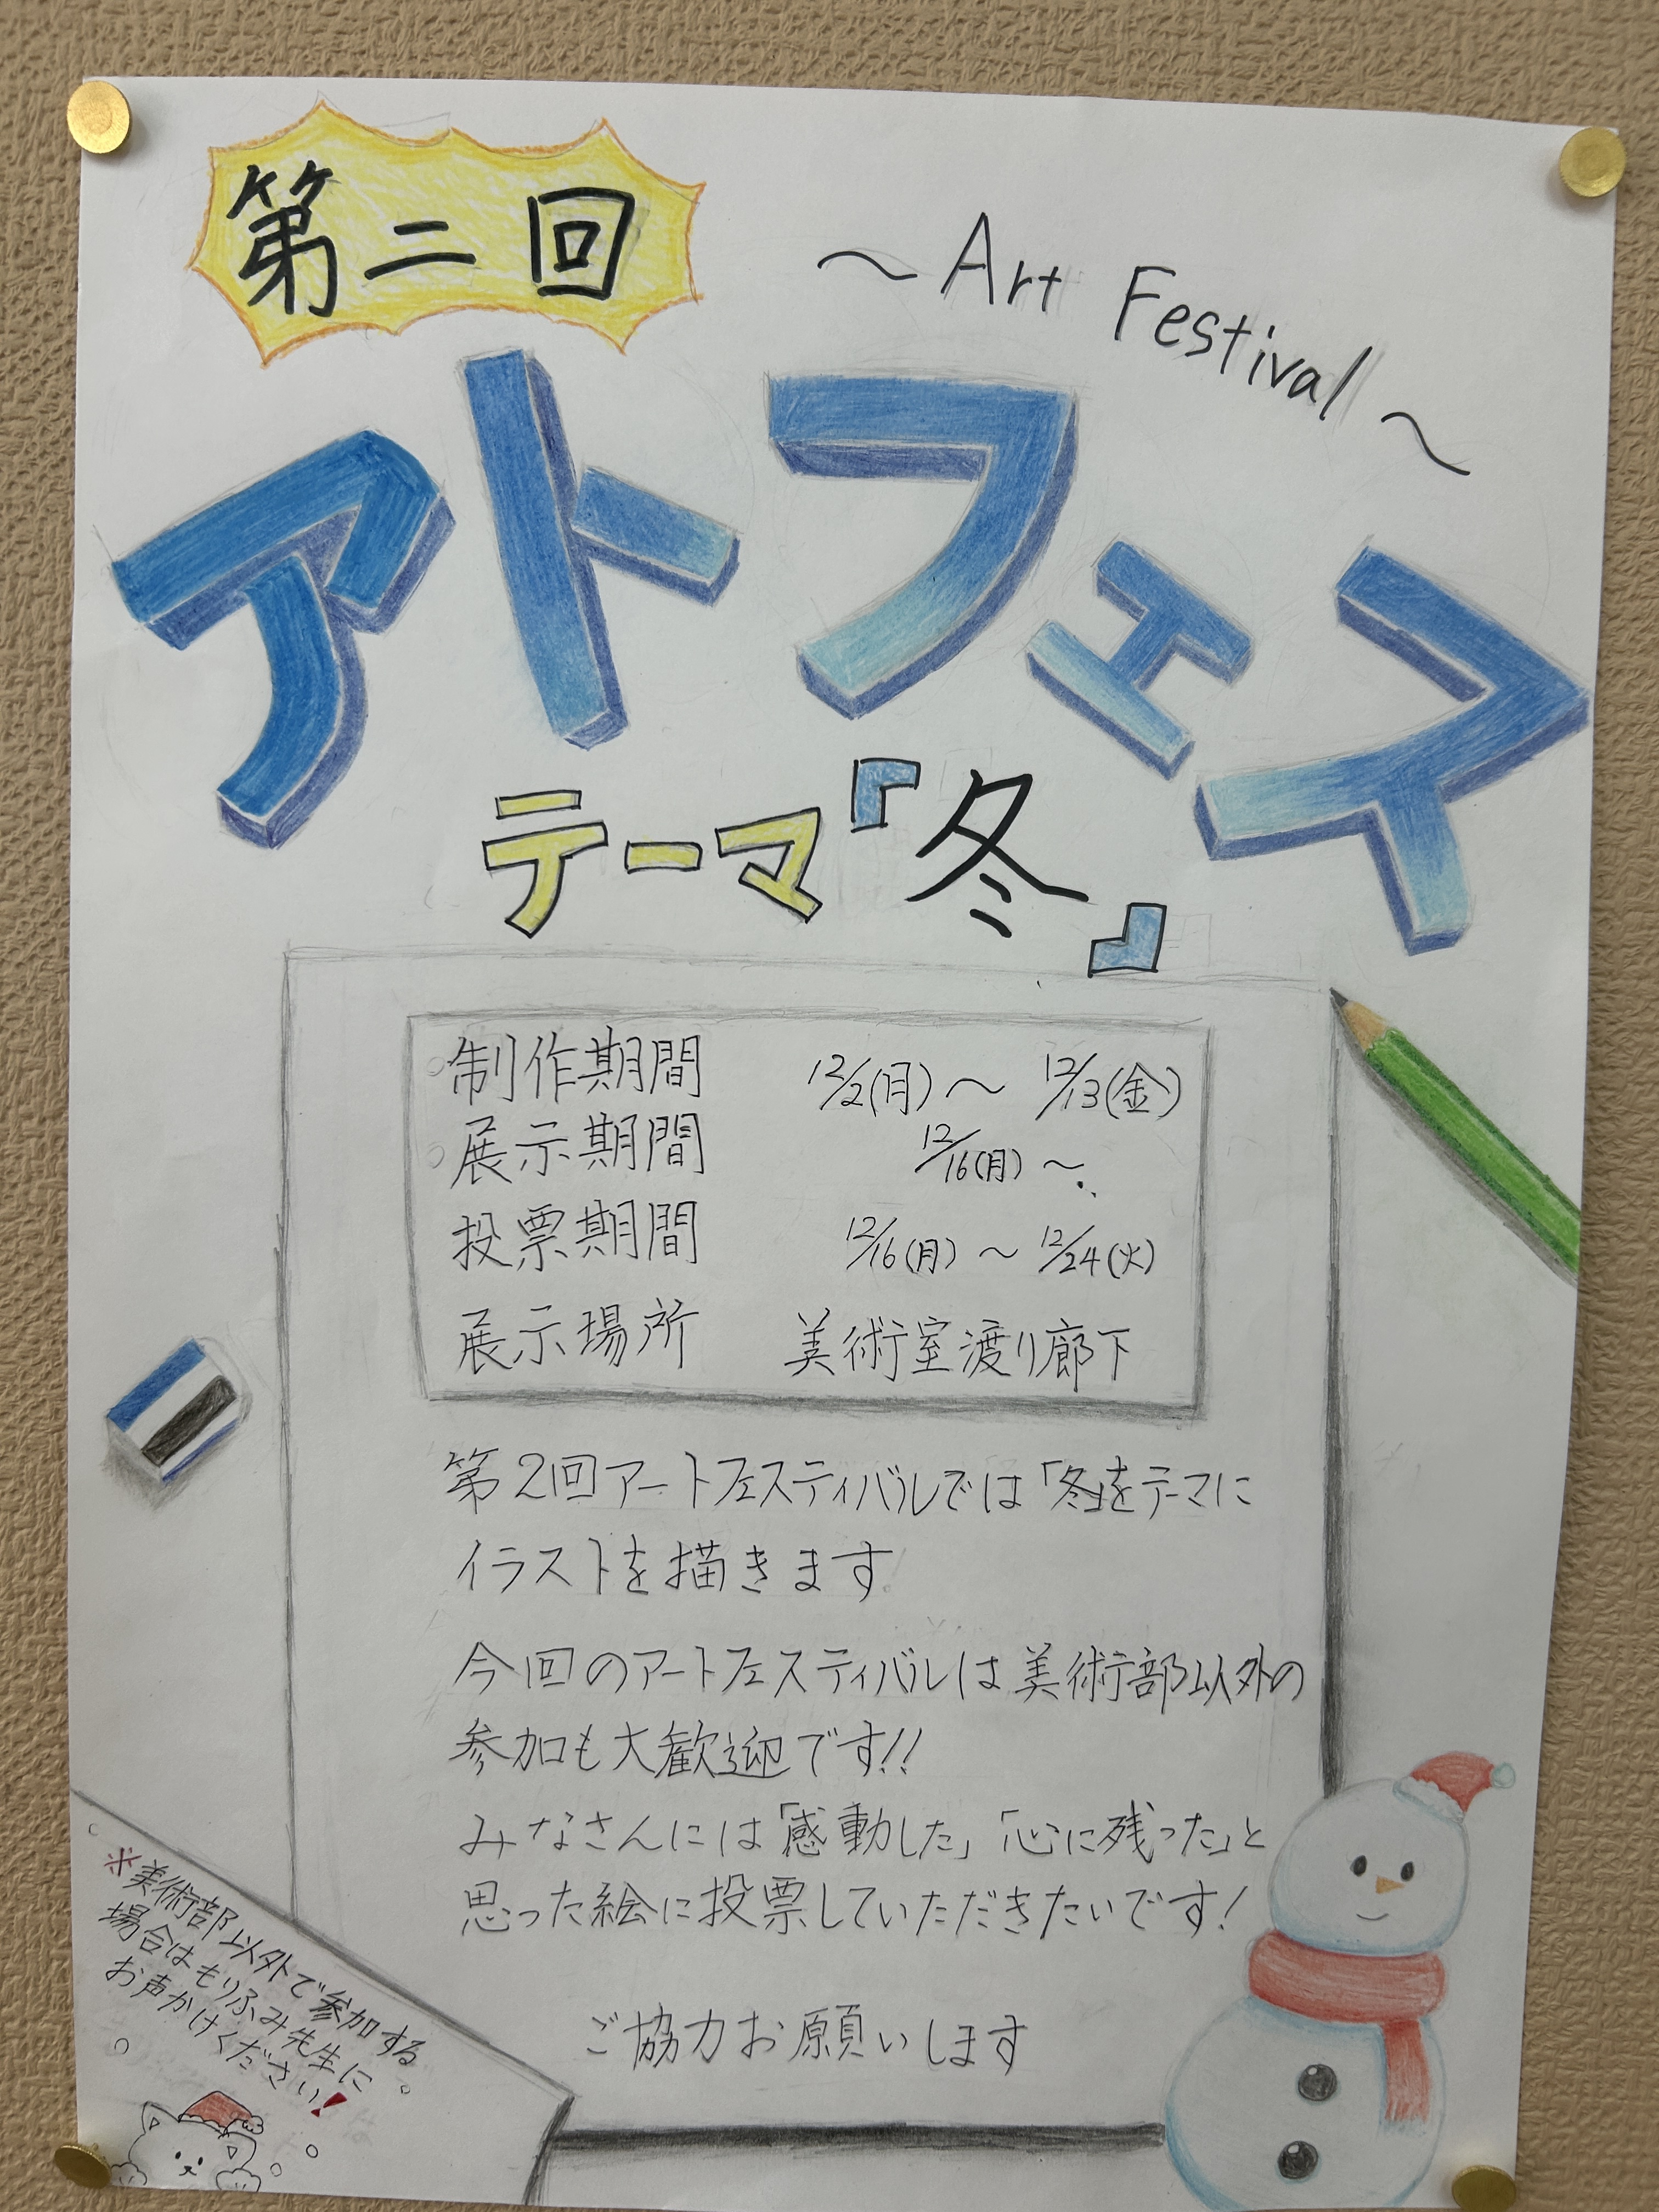 第二回
～Art Festival～
アトフェス
テーマ『冬』
制作期間 12/2(月)～ 12/13(金)
展示期間 12/16(月)～
投票期間 12/16(月)～12/24(火)
展示場所 美術室渡り廊下
第2回アートフェスティバルでは「冬」をテーマに
イラストを描きます
今回のアートフェスティバルは美術部以外の
参加も大歓迎です!!
みなさんには「感動した」「心に残った」と
思った絵に投票していただきたいです!
ご協力お願いします
※美術部以外で参加する
場合はもりふみ先生に
お声かけください!